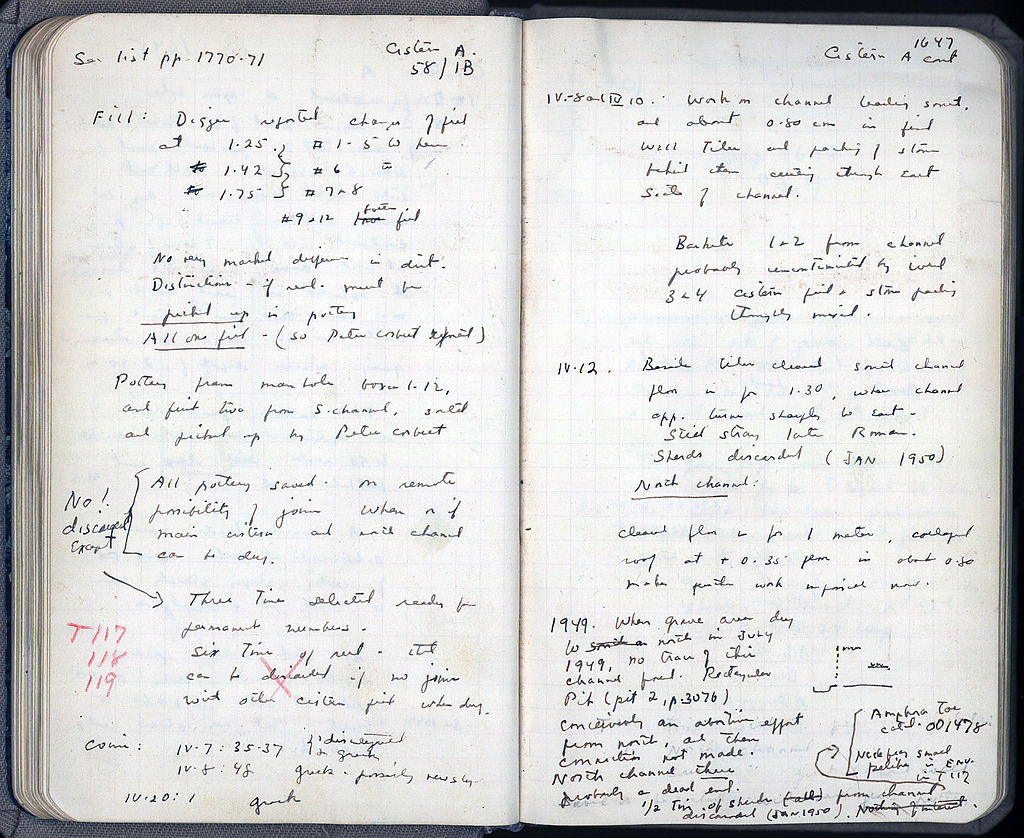 See list pp. 1770-71
Cistern A.
58/1B
Fill: Digger reported change of fill
at 1.25. #1-5 to here.
1.42 } #6
1.75 } #7+8
#9-12 bottom fill
No very marked difference in dirt.
Distinctions - if real - must be
picked up in pottery
All one fill - (so Peter Corbett reports)
Pottery from manhole boxes 1-12,
and first two from S. channel, sorted
and picked up by Peter Corbett
All pottery saved on remote
possibility of joins when & if
main cistern and north channel
can be dug.
No!
discarded
except
Three Tins selected ready for
permanent numbers.
T 117
118
119
Six Tins of rest - still
can be discarded if no joins
with other cistern fill when dug.
Coins: IV-7: 35-37 } 2 disintegrated
1 Greek
IV-8: 48 Greek - possibly news
IV-20: 1 Greek
1647
Cistern A cont
IV-8 and IV 10. Work in channel leading south.
and about 0.80 cm in find
well tiles and packing of stone
behind them coming through East
Side of channel.
Baskets 1+2 from channel
probably uncontaminated by well
3+4 cistern fill + stone packing
thoroughly mixed.
IV-12. Beside tiles cleared south channel
floor in for 1.30, when channel
app. turns sharply to East.
Still stray late Roman.
Sherds discarded (JAN 1950)
North channel:
cleared floor in for 1 meter, collapsed
roof at + 0.35 floor in about 0.80
makes further work impossible now.
1949. When grave area dug
to north in July
1949, no trace of this
channel found. Rectangular
Pit (pit 2, p. 3076)
conceivably an abortive effort
from north, and then
connection not made.
North channel there
probably a dead end.
Amphora Toe
cat'd. 001478
Neck frag small
pelike in Env.
in T 117
1/2 Tin of sherds (all) from channel
discarded (JAN 1950). Nothing of interest.